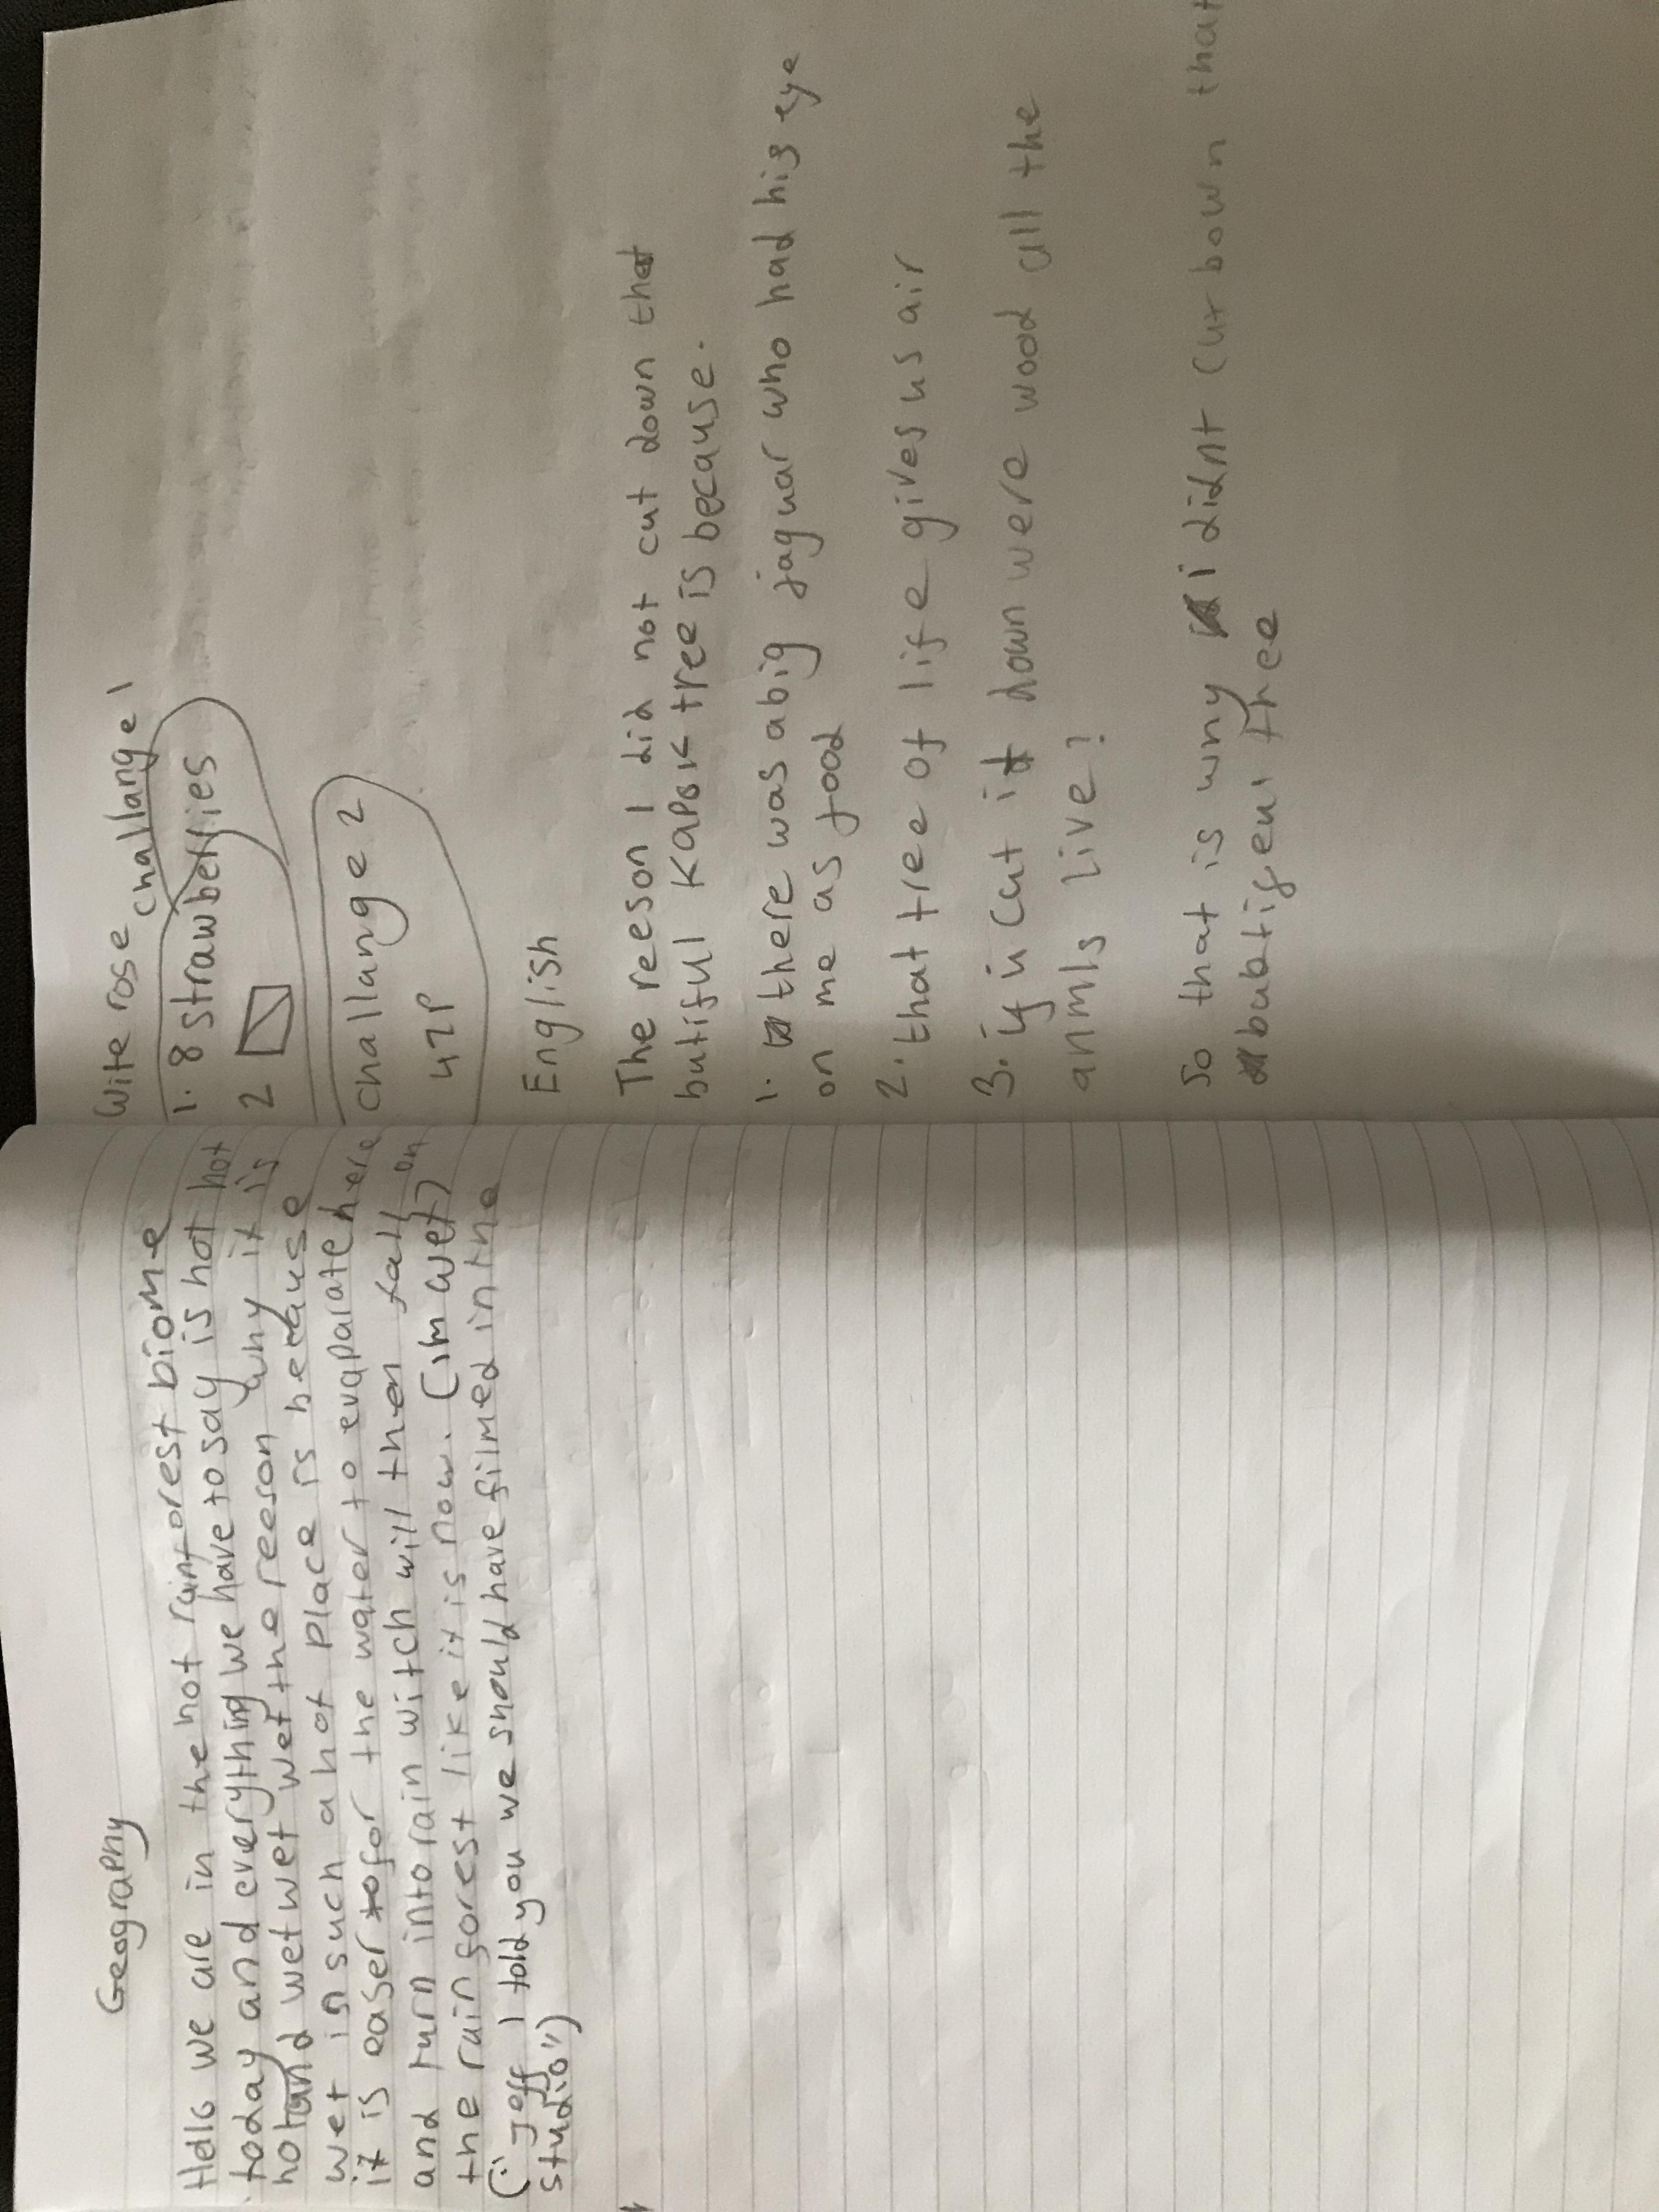 Geography
Hello we are in the hot rainforest biome
today and everything we have to say is hot hot
hot and wet wet wet wet the reeson why it is
wet in such a hot place is because
it is easer for the water to evaparate here
and turn into rain witch will then fall on
the rainforest like it is now. (im wet)
(" Jeff I told you we should have filmed in the
studio")
Wite rose challange 1
1. 8 strawberries
2
challange 2
42P
English
The reeson I did not cut down that
butiful Kapok tree is because.
1. there was a big jaguar who had his eye
on me as food
2. that tree of life gives us air
3. if i cut it down were wood all the
anmls live?
So that is why i didnt cut bown that
butifeul tree